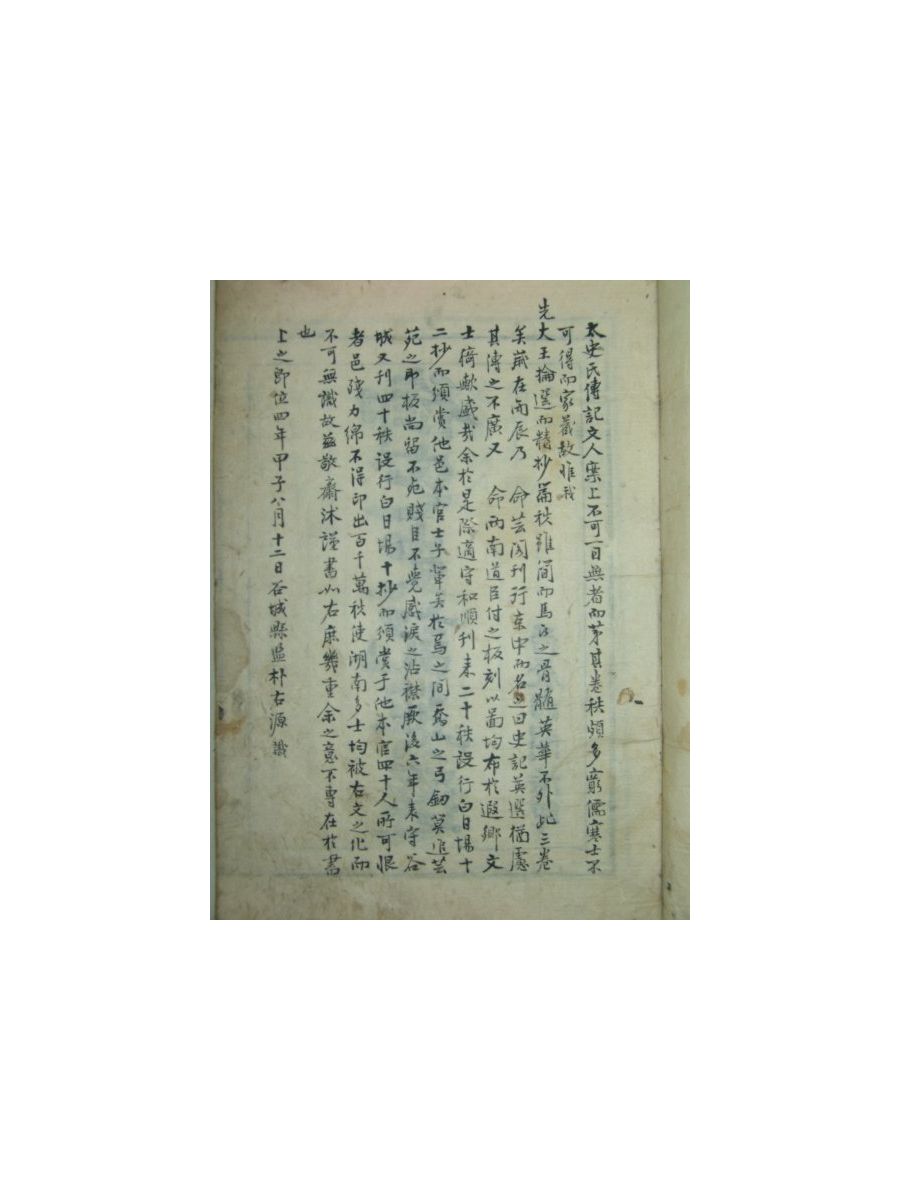 太史氏傳記文人案上不可一日無者而第其卷秩頗多窮儒寒士不
可得而家藏故惟我
先大王掄選而精抄篇秩雖簡而馬之骨髓英華不外此三卷
矣歲在丙辰乃 命芸閣刊行東中而名 曰史記英選猶慮
其傳之不廣又 命兩南道臣付之板刻以啚均布於遐鄉文
士猗歟盛哉余於是際適守和順刊來二十秩設行白日場十
二抄而頒賞他邑本官士子輩矣於焉之間喬山之弓釰莫追芸
苑之印板尚留不完賤臣不覺感淚之沾襟厥後六年來守谷
城又刊四十秩設行白日場十抄而頒賞于他本官四十人所可恨
者邑殘力綿不得印出百千萬秩使湖南多士均被右文之化而
不可無識故玆敬齋沐謹書如右庶幾重余之意不專在於書
也
上之即位四年甲子八月十二日谷城縣監朴右源識